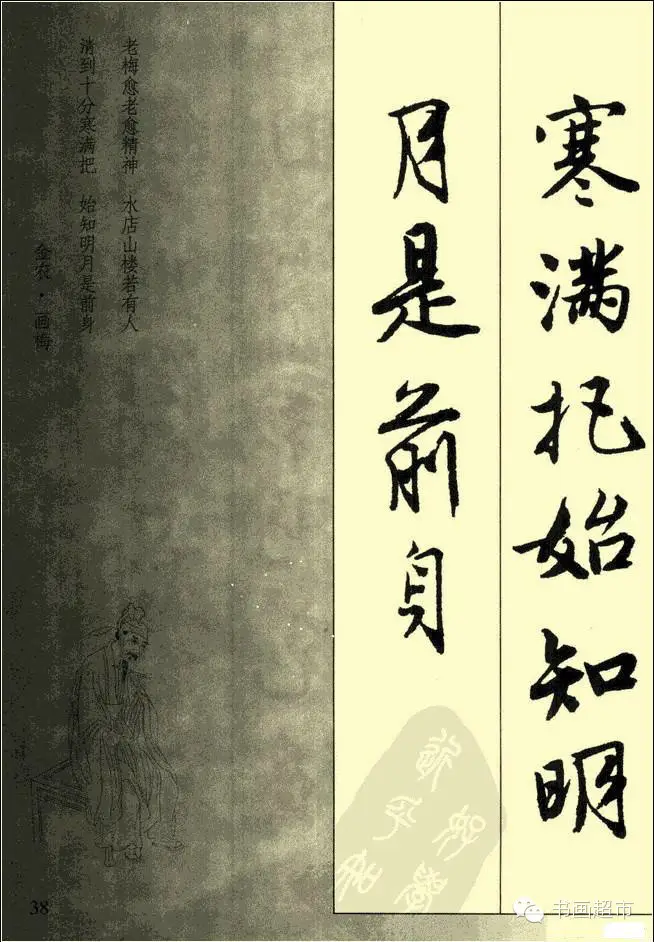 寒满把始知明
月是前身
老梅愈老愈精神 水店山楼若有人
清到十分寒满把 始知明月是前身
金农·画梅
38
书画超市